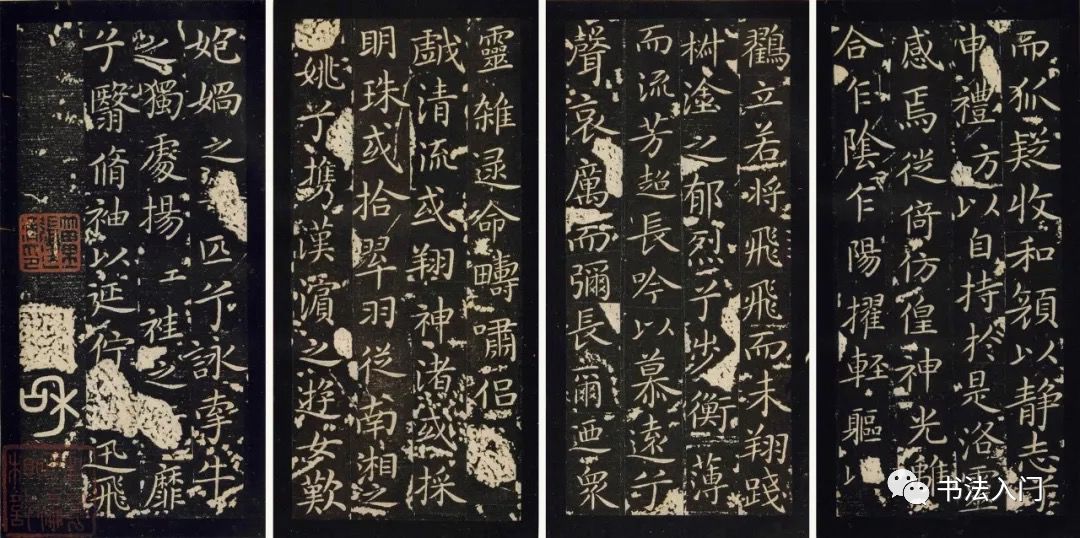 而狐疑收和顔以静志兮
申禮方以自持於是洛靈
感焉徙倚仿徨神光離
合乍陰乍陽擢輕軀以
鶴立若將飛飛而未翔踐
椒塗之郁烈兮步衡薄
而流芳超長吟以慕遠兮
聲哀厲而彌長爾迺衆
靈雜遝命疇嘯侣
戯清流或翔神渚或採
明珠或拾翠羽從南湘之
姚兮攜漢濱之遊女歎
妃媧之匹兮詠牽牛
之獨處揚袿之靡
兮翳脩袖以延佇迅飛
书法入门